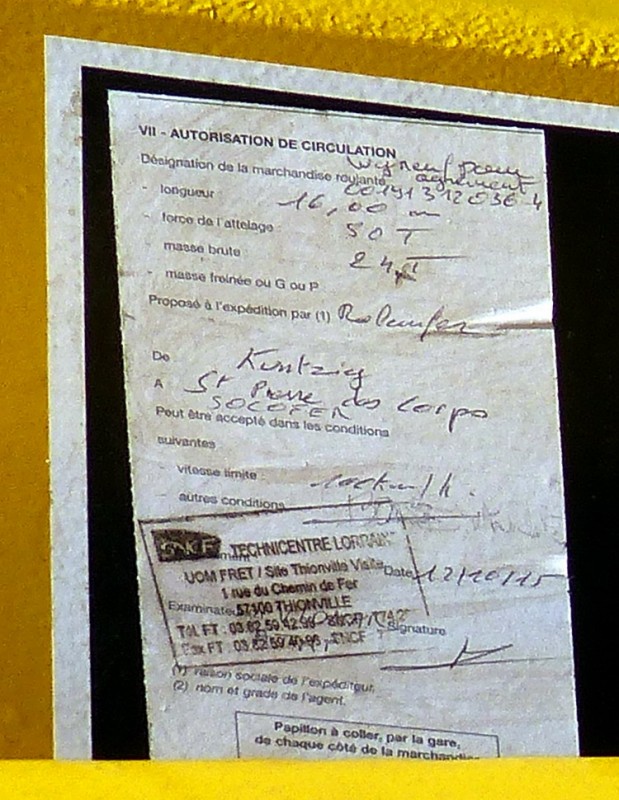 VII - AUTORISATION DE CIRCULATION
Désignation de la marchandise roulante
agrément
001913120 36-4
- longueur 16,00 m
- force de l'attelage 50 T
- masse brute 24 T
- masse freinée ou G ou P
Proposé à l'expédition par (1)
De Kuntzig
A St Pierre des Corps
SOCOFER
Peut être accepté dans les conditions
suivantes
- vitesse limite km/h.
- autres conditions
SNCF TECHNICENTRE LORRAIN
UOM FRET / Site Thionville Visite Date 12/10/15
1 rue du Chemin de Fer
Examinateur 57100 THIONVILLE
Tél FT : 03.82.59.42.
Signature
Fax FT : 03.82.59.40. SNCF
(1) raison sociale de l'expéditeur,
(2) nom et grade de l'agent.
Papillon à coller, par la gare,
de chaque côté de la marchandise